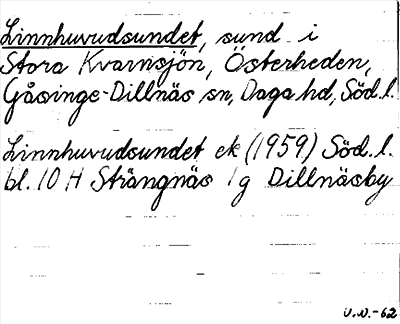 Linnhuvudsundet, sund i
Stora Kvarnsjön, Österheden,
Gåsinge-Dillnäs sn, Daga hd, Söd.l.
Linnhuvudsundet ek (1959) Söd.l.
bl. 10 H Strängnäs 1g Dillnäsby
U.N.-62